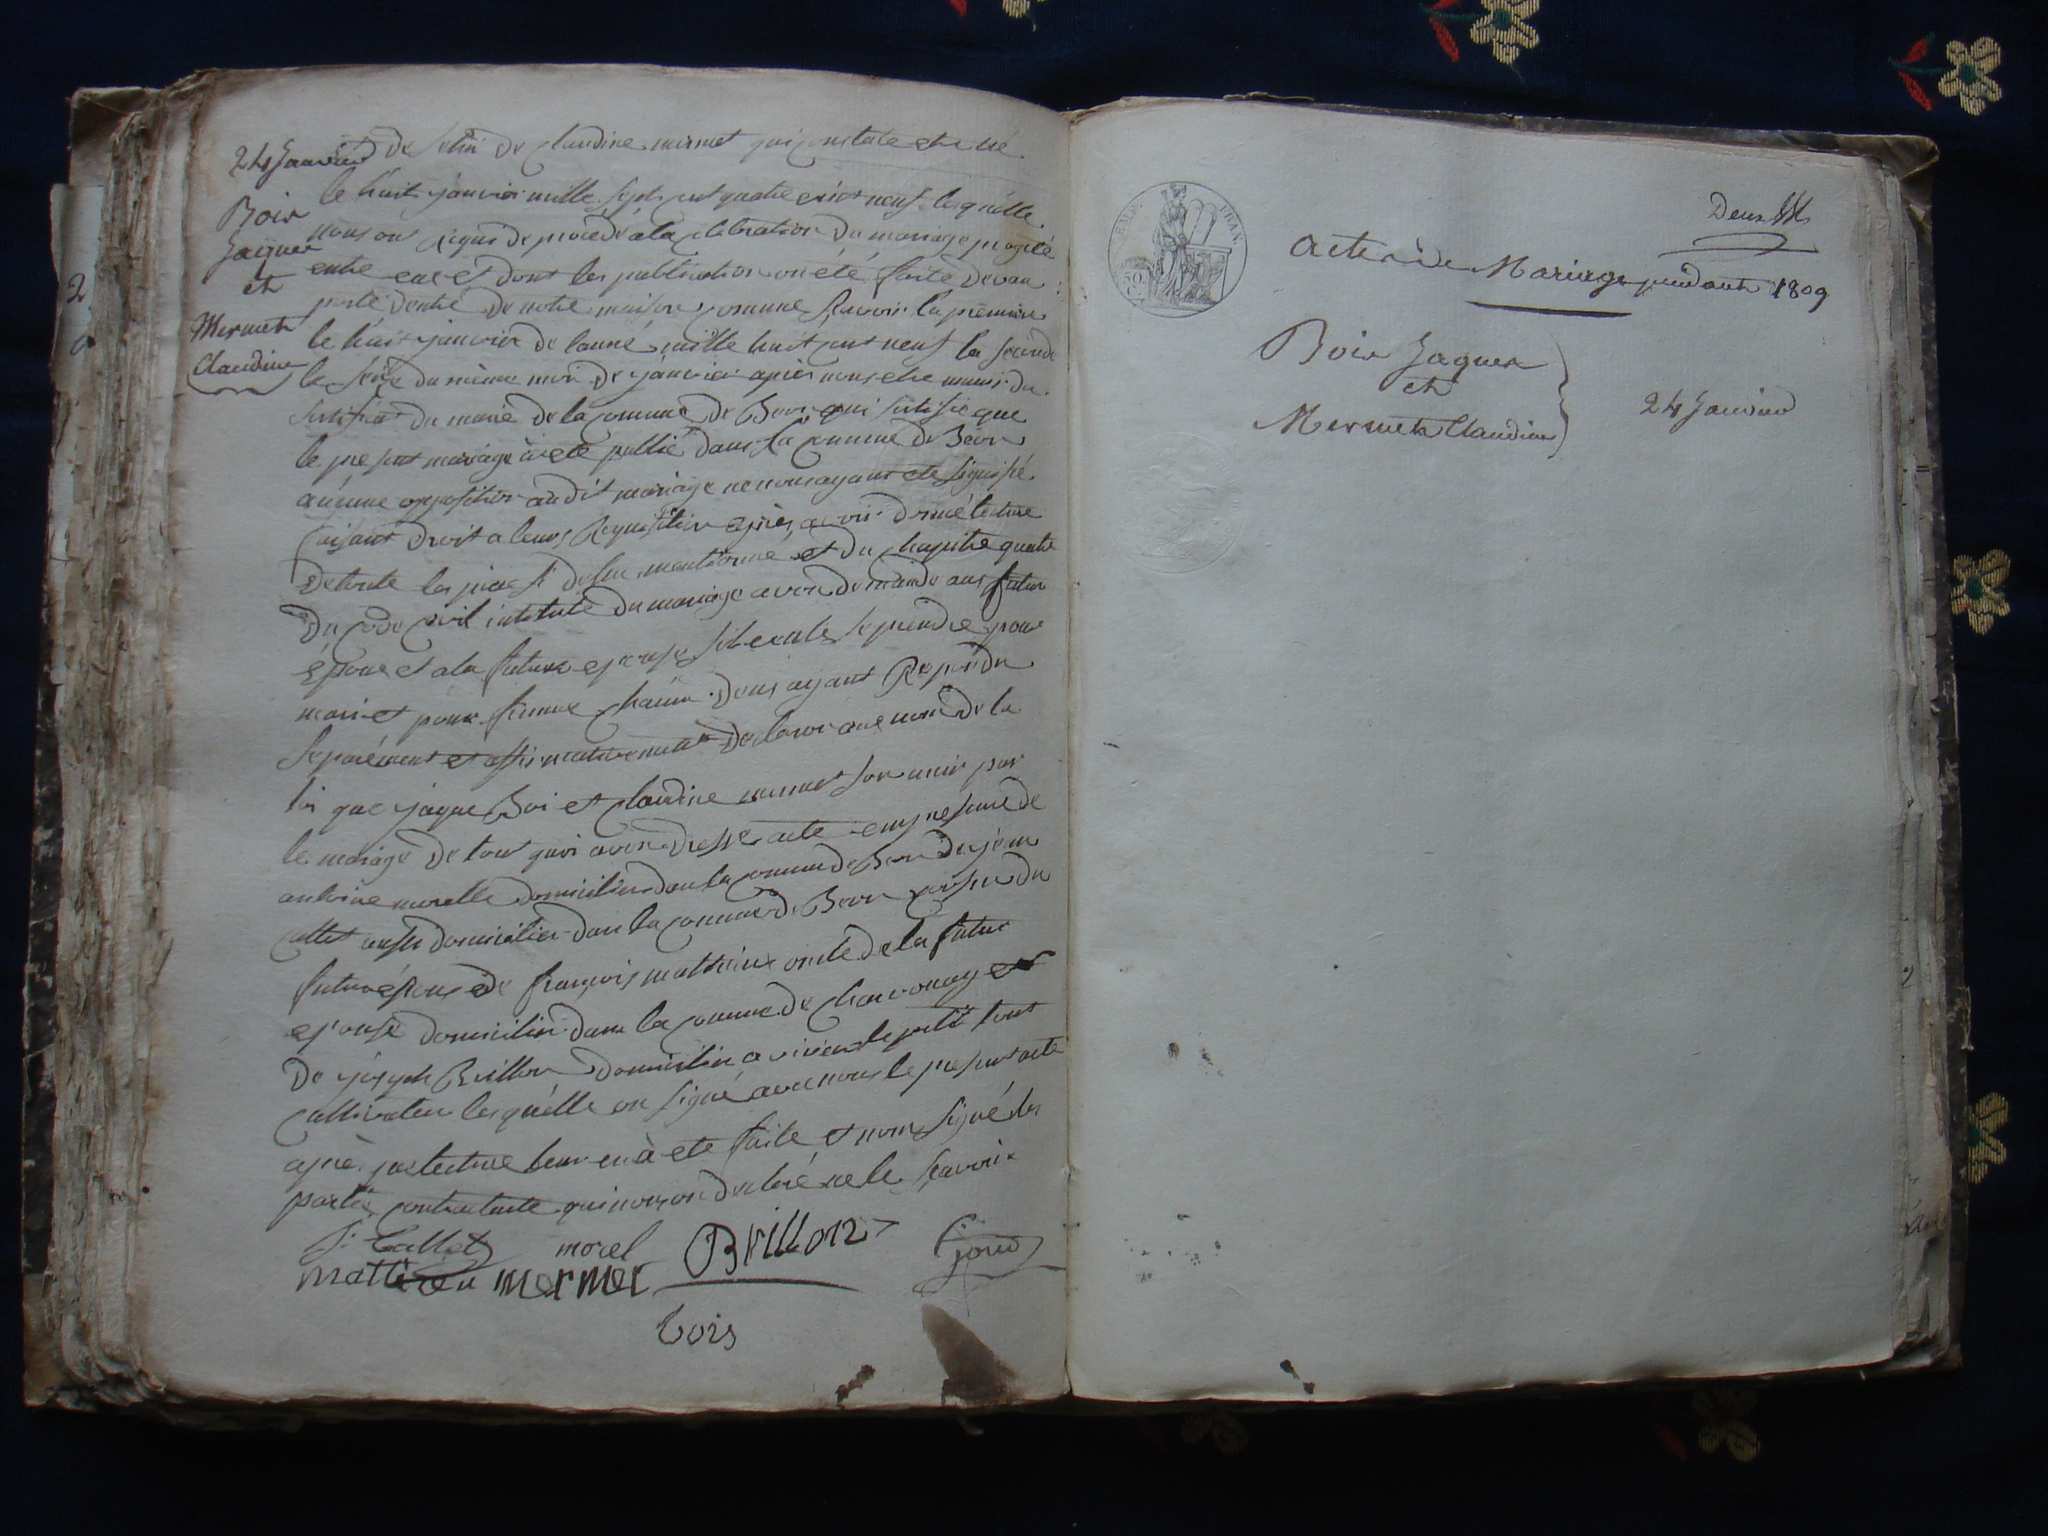 24 Janvier
Bois
Jaques
et
Mermet
Claudine
de selui de Claudine mermet qui constate etre né
le huit janvier mille sept cent quatre vint neuf lesquelle
nous on requi de procedé a la celebration du mariage projeté
entre eux et dont les publication on été faite devan
porte dentré de notre maison comune savoir la premiere
le huit janvier de lanné mille huit cent neuf la seconde
le seize du même moi de janvier apres nous etre muni du
sertificat du maire de la comune de Beon qui sertifie que
le present mariage à eté publié dans la comune de Beon
aucune opposition audit mariage ne nous ayant eté signifié
faisant droit a leurs requisition apres avoir donné lecture
de toute les pieces de su mentionné et du chapitre quatre
du code civil intitulé du mariage avon demande au futur
époux et a la future epouse sil veule se prendre pour
mari et pour femme chacun deux ayant repondu
separément et affirmativement declaron au nom de la
loi que jaque Boi et Claudine mermet son unis par
le mariage de tout quoi avon dressé acte en presence de
antoine morelle domicilier dan la comune de Beon de jean
callet aussi domicilier dan la comune de Beon cousin du
futur époux de françois mathieu oncle de la future
epouse domicilier dans la comune de charvonay et
de joseph Brillon domicilier a virieu le petit tout
cultivateur lesquelle on signé avec nous le present acte
après que lecture leur en à eté faite et non signé les
partie contractante qui nous on declaré ne le scavoir
J. Callet morel Brillon
mattieu mermet
bois
Deux
REP. FRAN.
50
Acte de Mariage pendant 1809
Bois Jaques
et
Mermet Claudine
24 Janvier